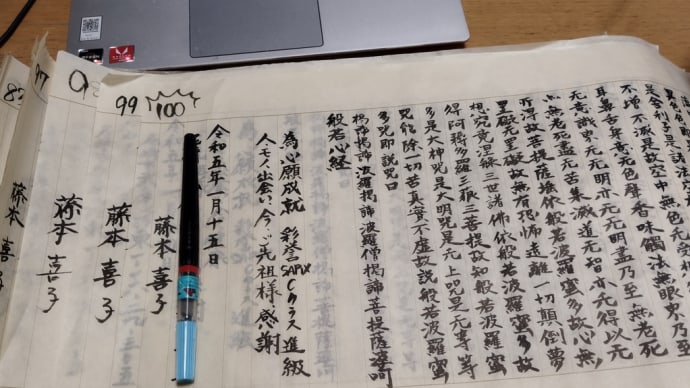 是舍利子是諸法
不增不減是故空中無色无受
耳鼻舌身意无色聲香味觸法無眼界乃至
无意識界无无明亦无无明盡乃至無老死
無老死盡无苦集滅道无智亦无得以元
所得故菩提薩埵依般若波羅蜜多故心無
罣礙无罣礙故無有恐怖遠離一切顛倒夢
想究竟涅槃三世諸佛依般若波羅蜜多故
得阿耨多羅三藐三菩提故知般若波羅蜜
多是大神咒是大明咒是元上咒是元等等
咒能除一切苦真實不虚故説般若波羅蜜
多咒即説咒曰
掲諦掲諦波羅掲諦波羅僧掲諦菩提薩婆訶
般若心経
為心願成就 彩誉SAPIXCクラス進級
人モノ出会い、今、ご先祖様感謝
令和五年一月十五日
藤本喜子
100
99
藤本喜子
藤本喜子
97
藤本喜子